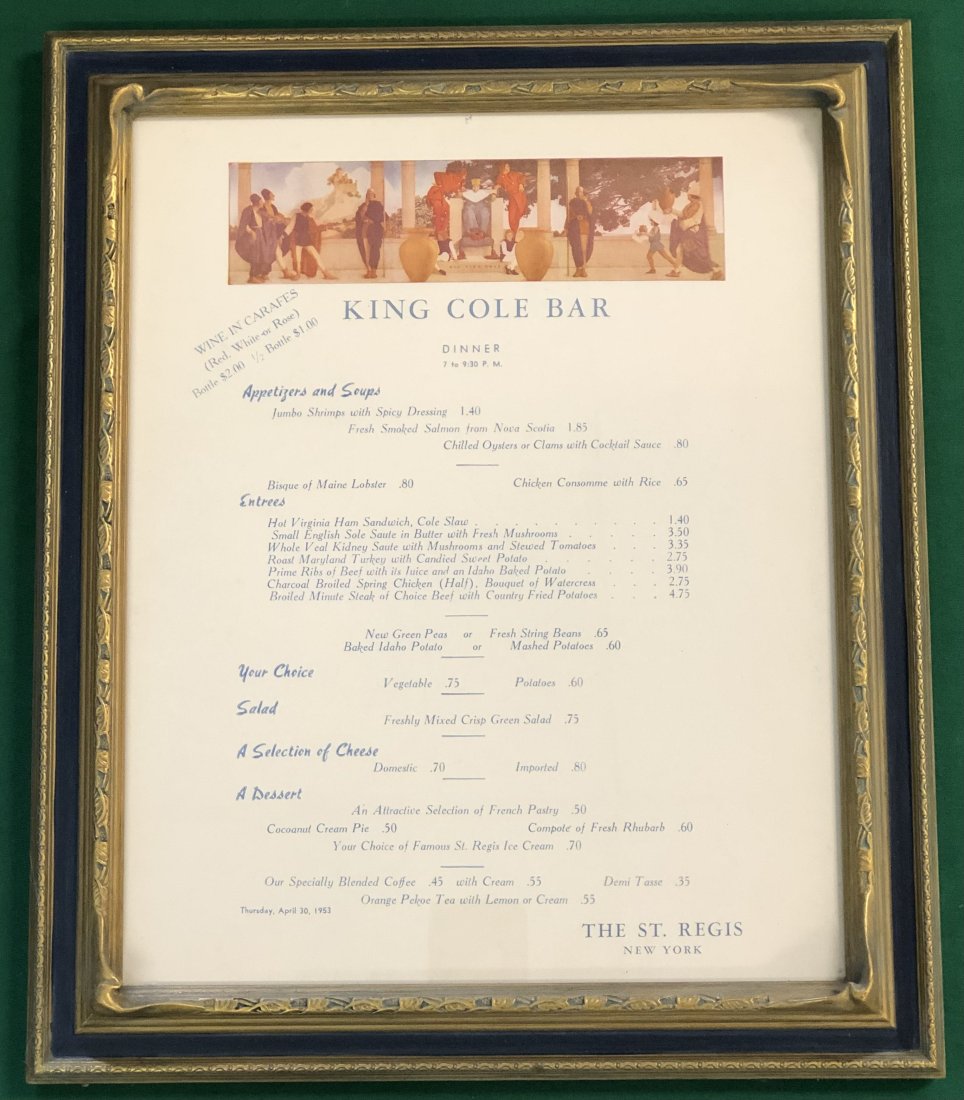 OLD KING COLE
KING COLE BAR
WINE IN CARAFES
(Red, White or Rose)
Bottle $2.00 1/2 Bottle $1.00
DINNER
7 to 9:30 P. M.
Appetizers and Soups
Jumbo Shrimps with Spicy Dressing 1.40
Fresh Smoked Salmon from Nova Scotia 1.85
Chilled Oysters or Clams with Cocktail Sauce .80
Bisque of Maine Lobster .80 Chicken Consomme with Rice .65
Entrees
Hot Virginia Ham Sandwich, Cole Slaw . . . . . . . . . . . 1.40
Small English Sole Saute in Butter with Fresh Mushrooms . . . . . 3.50
Whole Veal Kidney Saute with Mushrooms and Stewed Tomatoes . . . 3.35
Roast Maryland Turkey with Candied Sweet Potato . . . . . . 2.75
Prime Ribs of Beef with its Juice and an Idaho Baked Potato . . . . . 3.90
Charcoal Broiled Spring Chicken (Half), Bouquet of Watercress . . . 2.75
Broiled Minute Steak of Choice Beef with Country Fried Potatoes . . . 4.75
New Green Peas or Fresh String Beans .65
Baked Idaho Potato or Mashed Potatoes .60
Your Choice
Vegetable .75 Potatoes .60
Salad
Freshly Mixed Crisp Green Salad .75
A Selection of Cheese
Domestic .70 Imported .80
A Dessert
An Attractive Selection of French Pastry .50
Cocoanut Cream Pie .50 Compote of Fresh Rhubarb .60
Your Choice of Famous St. Regis Ice Cream .70
Our Specially Blended Coffee .45 with Cream .55 Demi Tasse .35
Orange Pekoe Tea with Lemon or Cream .55
Thursday, April 30, 1953
THE ST. REGIS
NEW YORK